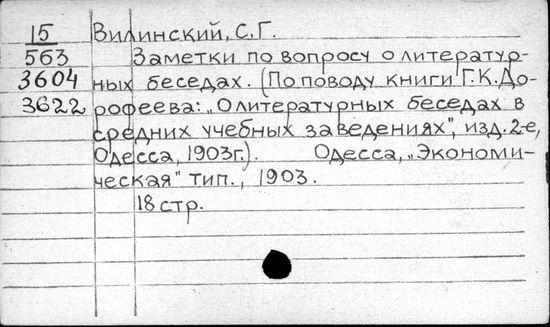 15 Вилинский, С.Г.
563 Заметки по вопросу о литератур-
3604 ных беседах. (По поводу книги Г.К.До-
3622 рофеева: „О литературных беседах в
средних учебных заведениях", изд. 2-е,
Одесса, 1903г.). Одесса, „Экономи-
ческая" тип., 1903.
18 стр.